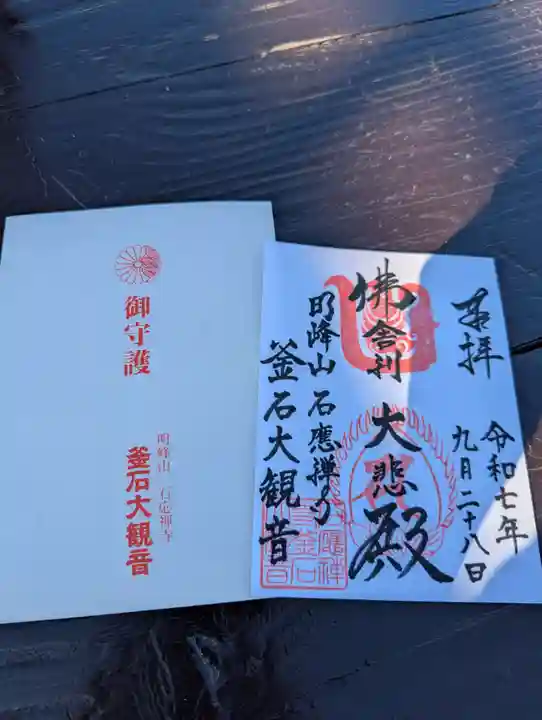 御守護
明峰山 石応禅寺
釜石大観音
奉拝
令和七年
九月二十八日
佛舎利 大悲殿
明峰山 石應禅寺
釜石大観音